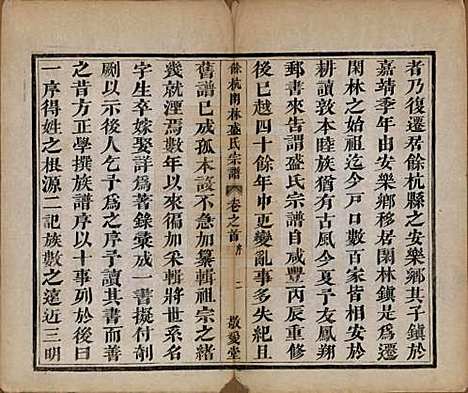 者乃復遷居餘杭縣之安樂鄉其子鎮於
嘉靖季年由安樂鄉移居閑林鎮是為遷
閑林之始祖今戶口數百家皆相安於
耕讀敦本睦族猶有古風今夏予友鳳翔
郵書來告謂盛氏宗譜自咸豐丙辰重修
後已越四十餘年中更變亂事多失人
餘杭閑林盛氏宗譜 卷之首 序 二 敬愛堂
舊譜已成孤本設不急加纂輯祖宗之緒
幾就湮焉數年以來徧加采輯將世系名
字生卒嫁娶詳為著錄彙成一書擬付剞
劂以示後人乞予為之序予讀其書而善
之昔方正學撰族譜序以十事列於後曰
一序得姓之根源二記族數之遠近三明